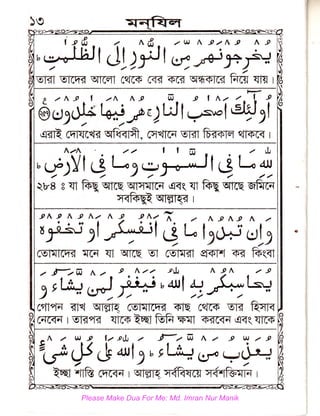 ১৩ মনযিল
يُخْرِجُوْنَهُمْ مِّنَ النُّوْرِ اِلَى الظُّلُمٰتِ ؕ
তারা তাদের আলো থেকে বের করে অন্ধকারে নিয়ে যায়।
اُولٰٓئِكَ اَصْحٰبُ النَّارِ ۚ هُمْ فِيْهَا خٰلِدُوْنَ
এরাই দোযখের অধিবাসী, সেখানে তারা চিরকাল থাকবে।
لِلّٰهِ مَا فِى السَّمٰوٰتِ وَمَا فِى الْاَرْضِ ؕ
২৮৪ ঃ যা কিছু আছে আসমানে এবং যা কিছু আছে জমিনে
সবকিছুই আল্লাহর।
وَاِنْ تُبْدُوْا مَا فِىْٓ اَنْفُسِكُمْ اَوْ تُخْفُوْهُ
তোমাদের মনে যা আছে তা তোমরা প্রকাশ কর কিংবা
يُحَاسِبْكُمْ بِهِ اللّٰهُ ؕ فَيَغْفِرُ لِمَنْ يَّشَآءُ
গোপন রাখ আল্লাহ তোমাদের কাছ থেকে তার হিসাব
নেবেন। তারপর যাকে ইচ্ছা তিনি ক্ষমা করবেন এবং যাকে
وَيُعَذِّبُ مَنْ يَّشَآءُ ؕ وَاللّٰهُ عَلٰى كُلِّ شَىْءٍ
ইচ্ছা শাস্তি দেবেন। আল্লাহ সর্ববিষয়ে সর্বশক্তিমান।
Please Make Dua For Me: Md. Imran Nur Manik